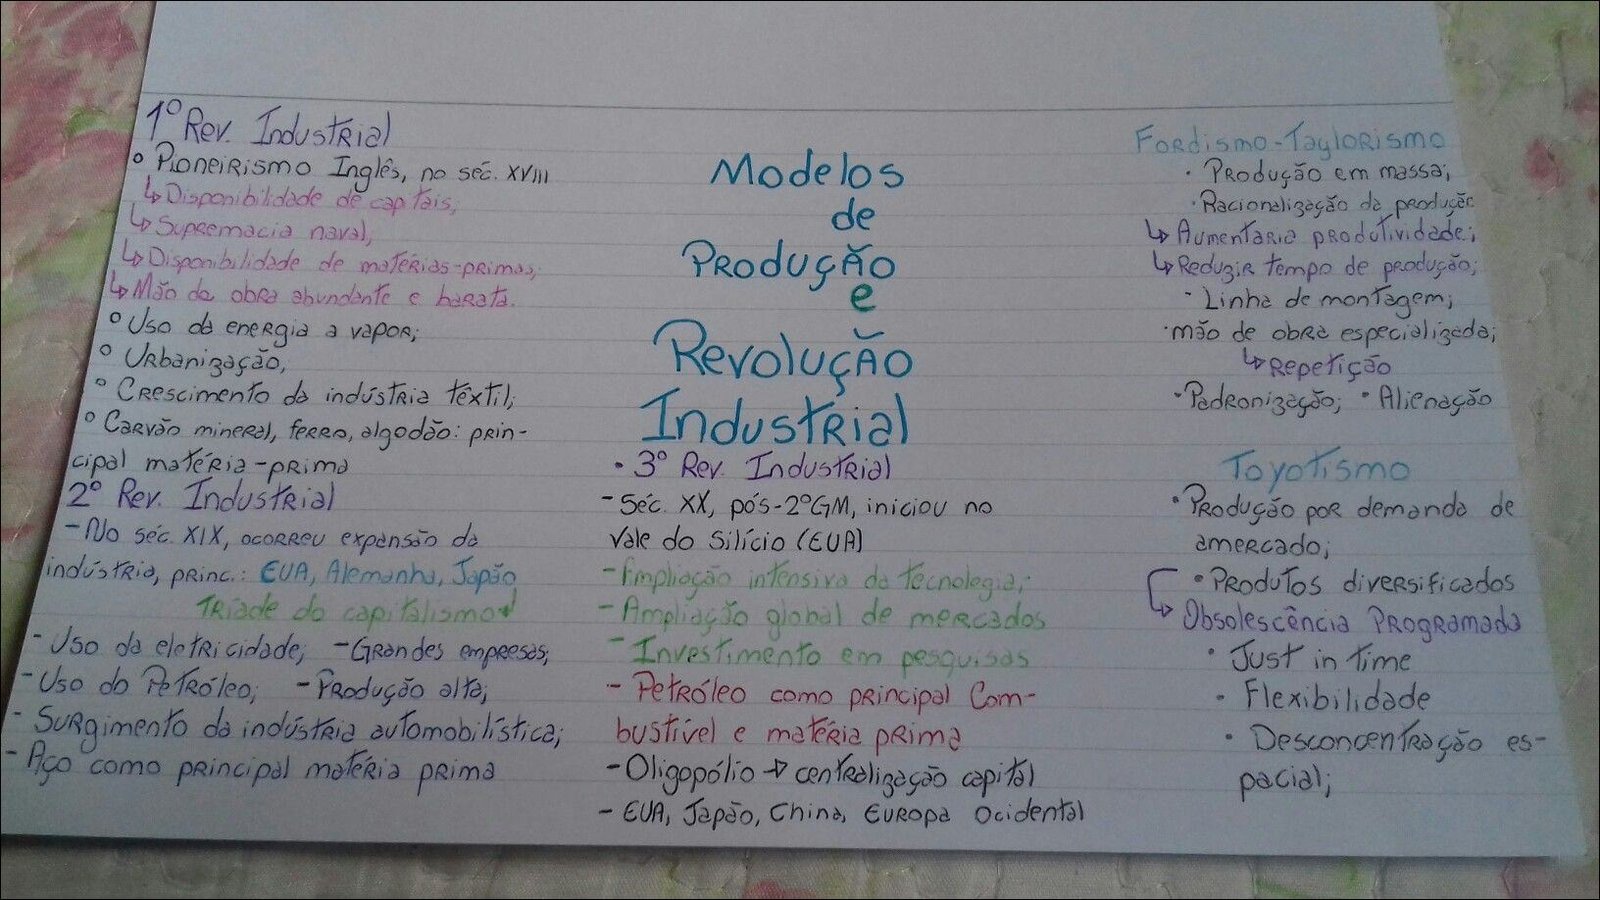 1º Rev. Industrial
º Pioneirismo Inglês, no séc. XVIII
↳ Disponibilidade de capitais;
↳ Supremacia naval;
↳ Disponibilidade de matérias-primas;
↳ Mão da obra abundante e barata.
º Uso da energia a vapor;
º Urbanização;
º Crescimento da indústria têxtil;
º Carvão mineral, ferro, algodão: prin-
cipal matéria-prima
2º Rev. Industrial
- No séc. XIX, ocorreu expansão da
indústria, princ.: EUA, Alemanha, Japão
Tríade do capitalismo
- Uso da eletricidade; - Grandes empresas;
- Uso do Petróleo; - Produção alta;
- Surgimento da indústria automobilística;
- Aço como principal matéria prima
Modelos
de
Produção
e
Revolução
Industrial
• 3º Rev. Industrial
- Séc. XX, pós-2ºGM, iniciou no
Vale do Silício (EUA)
- Ampliação intensiva da tecnologia;
- Ampliação global de mercados
- Investimento em pesquisas
- Petróleo como principal Com-
bustível e matéria prima
- Oligopólio → centralização capital
- EUA, Japão, China, Europa Ocidental
Fordismo-Taylorismo
• Produção em massa;
• Racionalização da produção
↳ Aumentaria produtividade;
↳ Reduzir tempo de produção;
- Linha de montagem;
• mão de obra especializada;
↳ Repetição
• Padronização; • Alienação
Toyotismo
• Produção por demanda de
amercado;
• Produtos diversificados
↳ Obsolescência Programada
• Just in time
• Flexibilidade
• Desconcentração es-
pacial;